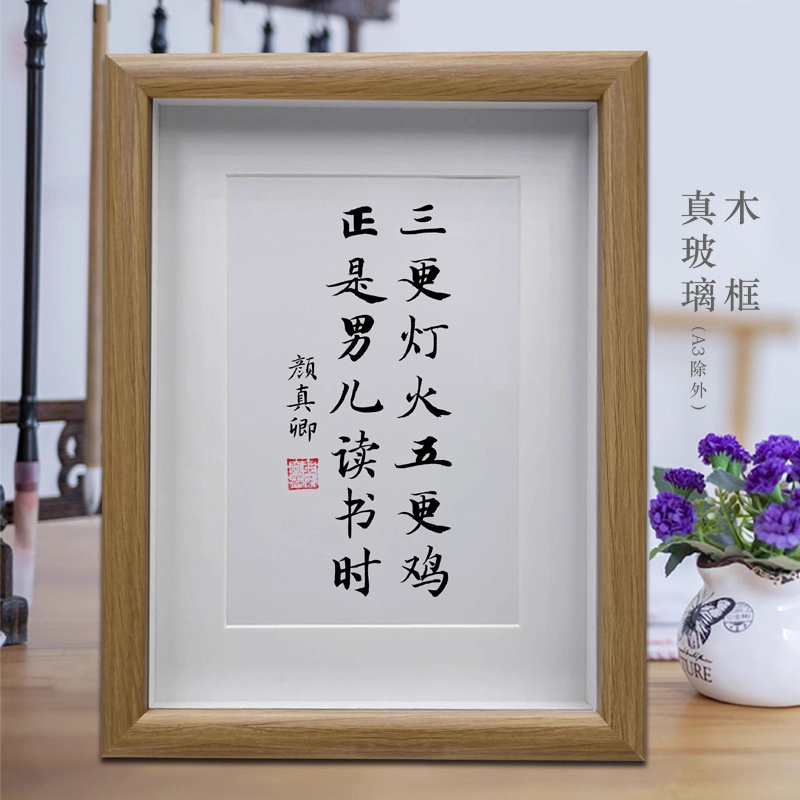 三更灯火五更鸡
正是男儿读书时
颜真卿
木框
真玻璃(A3除外)
TURE